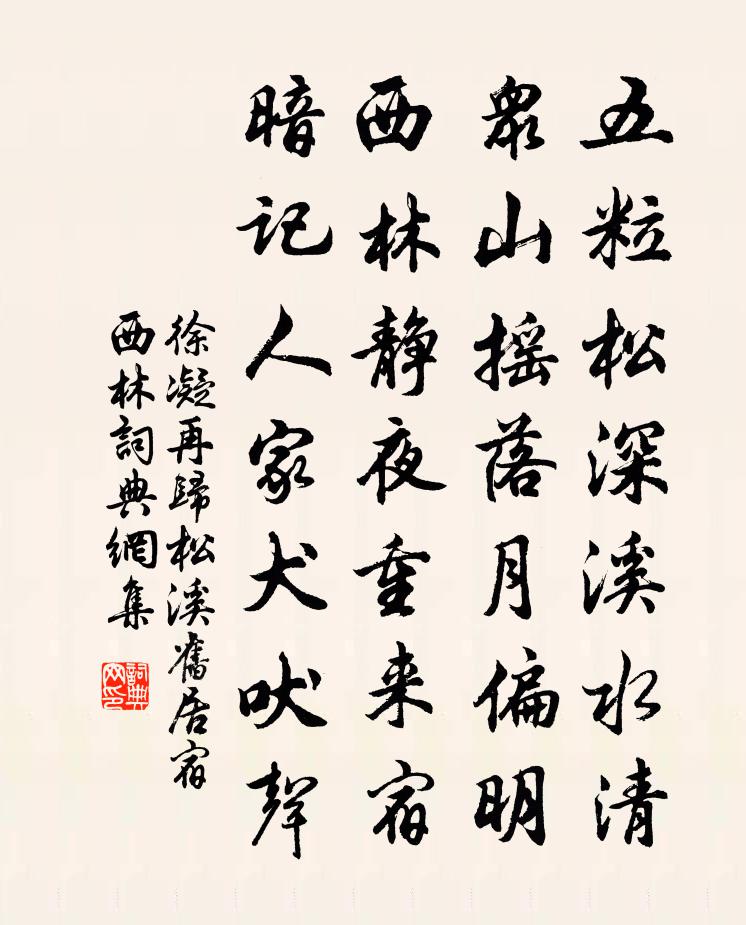 五粒松深溪水清
衆山摇落月偏明
西林静夜重来宿
暗记人家犬吠聲
徐凝再歸松溪舊居宿
西林詞典網集
詞典
网印